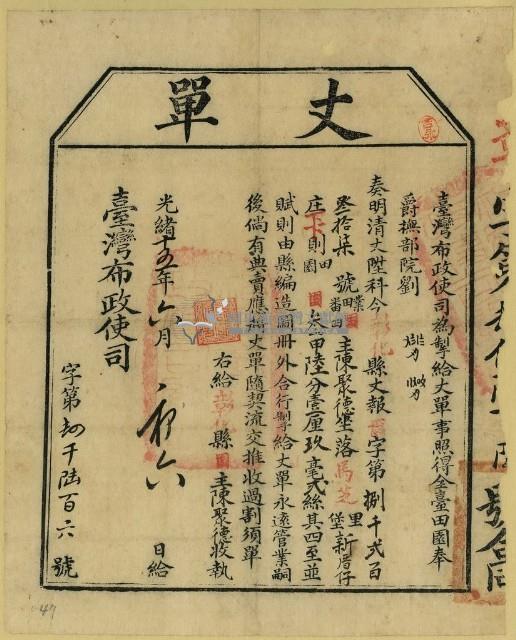 丈單
臺灣布政使司為掣給丈單事照得全臺田園奉
爵撫部院劉
奏明清丈陞科今彰化縣丈報賓字第捌千弍百
叁拾柒號業園主陳聚德坐落馬芝里堡新厝仔
庄下下則田園叁甲陸分壹厘玖毫弍絲其四至並
賦則由縣編造圖冊外合行掣給丈單永遠管業嗣
後倘有典賣應將丈單隨契流交推收過割須單
右給彰化縣園主陳聚德收執
光緒十五年六月初六日給
臺灣布政使司
字第 千陸百六號
47